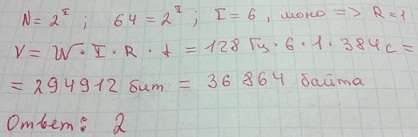 N=2^I; 64=2^I; I=6, моно => R=1
V = W·I·R·t = 128 Гц·6·1·384 с =
= 294912 бит = 36 864 байта
Ответ: 2